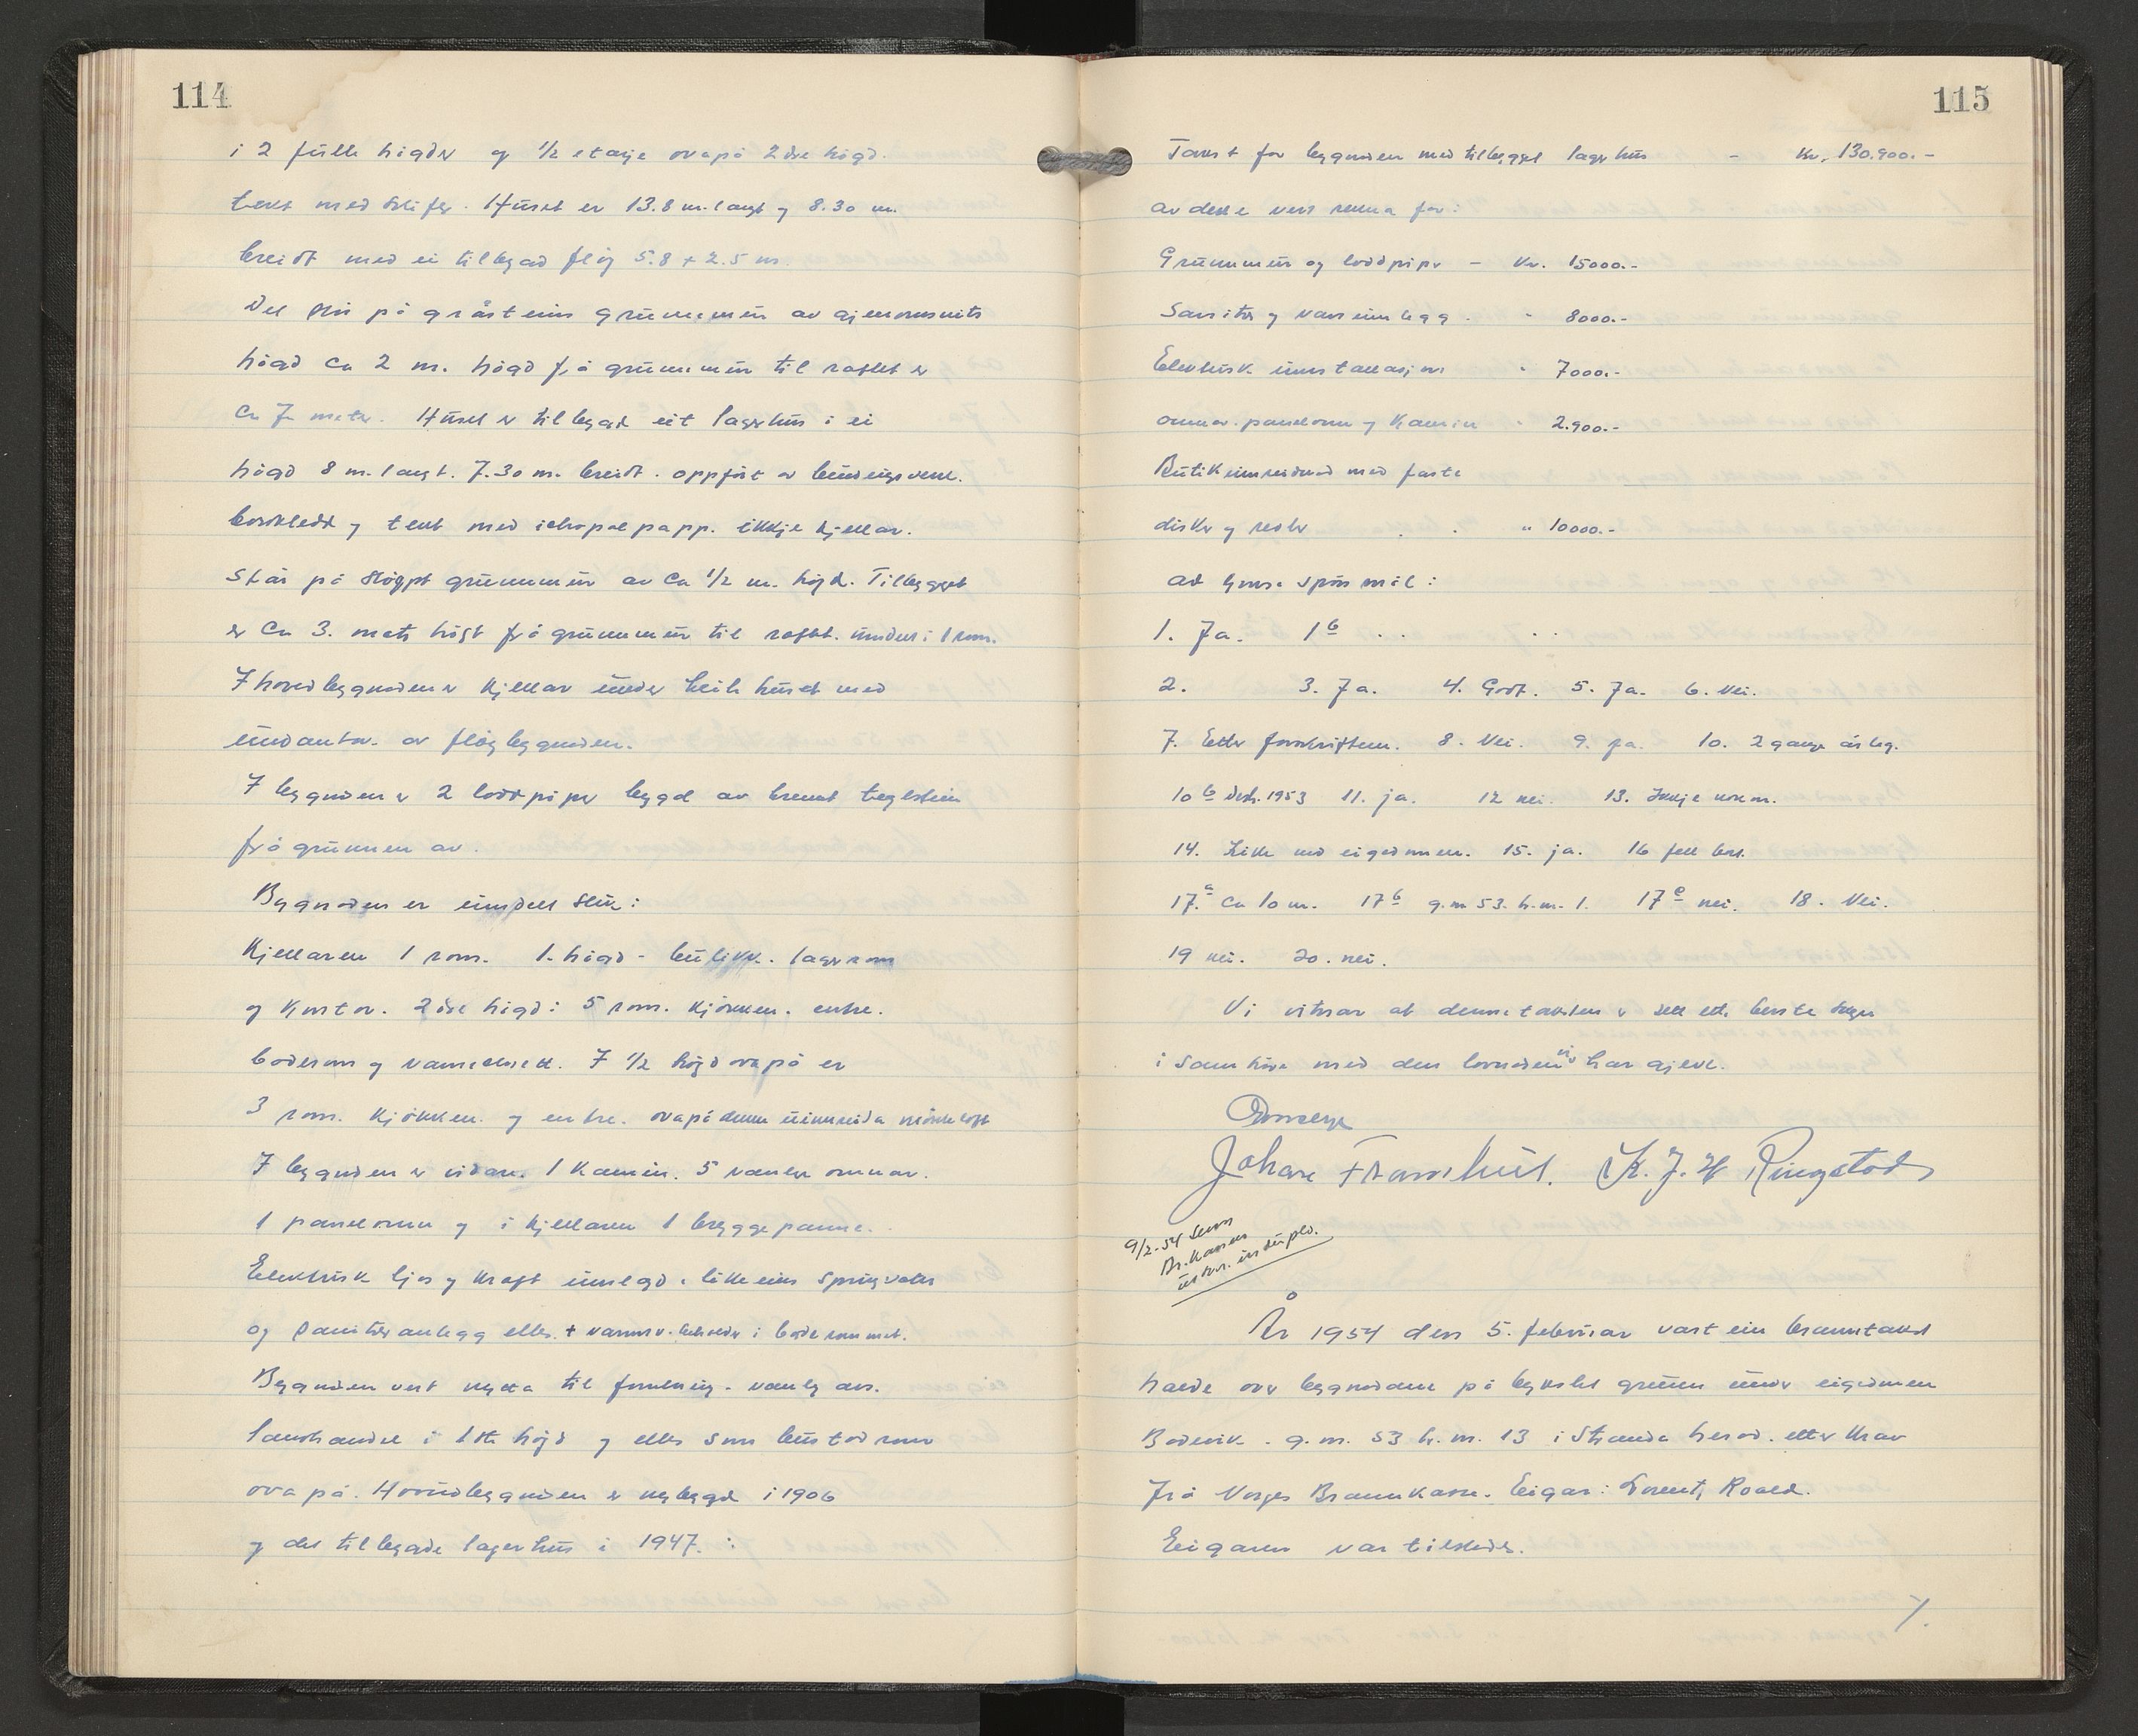 114
i 2 fulle høgder og 1/2 etasje ovapå 2dre høgd.
tekt med skifer. Huset er 13.8 m. langt og 8.30 m.
breidt med ei tilbygd fløy 5.8 + 2.5 m.
Det står på gråsteins grunnmur av gjennomsnits
høgd ca 2 m. høgd frå grunnmur til raftet er
ca 7 meter. Huset er tilbygd eit lagerhus i ei
høgd 8 m. langt. 7.30 m. breidt. oppført av bindingsverk.
bordkledd og tekt med papp. ikkje kjellar.
Står på støypt grunnmur av ca 1/2 m. høgd. Tilbygget
er ca 3. meter høgt frå grunnmur til raftet. 1 rom.
I hovedbygnaden er kjellar under heile huset med
unnantak av fløybygnaden.
I bygnaden er 2 loddpiper bygd av brennt teglstein
frå grunnen av.
Bygnaden er inndelt slik:
Kjellaren 1 rom. 1. høgd - butikk. lagerrom
og kontor. 2dre høgd: 5 rom. kjøkken. entre.
baderom og vannklosett. I 1/2 høgd ovapå er
3 rom. kjøkken. og entre. ovapå denne uinnreida mørkeloft
I bygnaden er vidare. 1 kamin. 5 vanlege omnar.
1 panelomn og i kjellaren 1 bryggepanne.
Elektrisk ljos og kraft innlagd. likeeins springvatn
og sanitæranlegg elles. + varmv. beholder i baderommet.
Bygnaden vert nytta til forretning - vanleg
landhandel i 1ste høgd og elles som bustadrom
ovapå. Hovudbygnaden er nybygd i 1906
og det tilbygde lagerhus i 1947. :
115
Takst for bygnaden med tilbygget lagerhus - Kr. 130.900.-
av dette vert rekna for:
Grunnmur og loddpiper - Kr. 15000.-
Sanitær og vassinnlegg. " 8000.-
Elektrisk innstallasjon " 7000.-
omnar. panelomn og kamin " 2.900.-
Butikkinnreidnad med faste
diskar og reolar . . " 10000.-
ad ymse spørsmål:
1. Ja. 1b . . . .
2. 3. Ja. 4. Godt. 5. Ja. 6. Nei.
7. Etter forskriftene. 8. Nei. 9. ja. 10. 2 gange årleg.
10b Des. 1953 11. ja. 12 nei. 13. Ikkje nokon.
14. ved eigedomen. 15. ja. 16
17.a ca 10 m. 17b g.nr 53. b.nr. 1. 17c nei. 18. Nei.
19 nei. 20. nei.
Vi vitnar at denne taksten er sett etter beste skjøn
i samhøve med den lovnaden vi har gjeve.
Johan Framhus. K. J. H Ringstad
9/2-54 Senn
Br.kassen
utskr. in duplo.
År 1954 den 5. februar vart ein branntakst
halde over bygnadane på bykslet grunn under eigedomen
Bodevik - g.nr. 53 b.nr. 13 i Stranda herad. etter krav
frå Norges Brannkasse. Eigar: Lorents Roald.
Eigaren var tilstede.